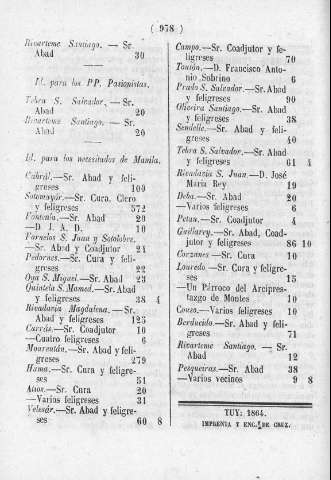 ( 978 )
Rivarteme Santiago. — Sr.
Abad 30
Id. para los PP. Pasionistas.
Tebra S. Salvador, — Sr.
Abad 20
Rivarteme Santiago, — Sr.
Abad 20
Id. para los necesitados de Manila.
Cabrál.—Sr. Abad y feli-
greses 100
Sotomayór.—Sr. Cura, Clero
y feligreses 572
Fontenla.—Sr. Abad 20
—D. J. A. D. 10
Tornelos S. Juan y Sotolobre.
—Sr. Abad y Coadjutor 24
Pedornes.—Sr. Cura y feli-
greses 22
Oya S. Miguel.—Sr. Abad 23
Quintela S. Mamed.—Sr. Abad
y feligreses 38 4
Rivadavia Magdalena. — Sr.
Abad y feligreses 125
Carrás.—Sr. Coadjutor 10
—Cuatro feligreses 6
Mourentán.—Sr. Abad y feli-
greses 279
Hama.—Sr. Cura y feligre-
ses 51
Atios.—Sr. Cura 20
—Varios feligreses 31
Velesár.—Sr. Abad y feligre-
ses 60 8
Campo.—Sr. Coadjutor y fe-
ligreses 70
—D. Francisco Anto-
nio Sobrino 6
Prado S. Salvador.—Sr. Abad
y feligreses 90
Oliveira Santiago.—Sr. Abad
y feligreses 38
Sendelle.—Sr. Abad y feli-
greses 40
Tebra S. Salvador.—Sr. Abad
y feligreses 61 4
Rivadavia S. Juan.—D. José
Maria Rey 19
Deba.—Sr. Abad 20
—Varios feligreses 6
Petan.—Sr. Coadjutor 4
Guillarey.—Sr. Abad, Coad-
jutor y feligreses 86 10
Corzanes—Sr. Cura 10
Louredo.—Sr. Cura y feligre-
ses 15
—Un Párroco del Arcipres-
tazgo de Montes 10
Couso.—Varios feligreses 10
Berducido.—Sr. Abad y feli-
greses 71
Rivarteme Santiago. — Sr.
Abad 12
Pesqueiras.—Sr. Abad 38
—Varios vecinos 9 8
TUY: 1864.
IMPRENTA Y ENC.ª DE CRUZ.